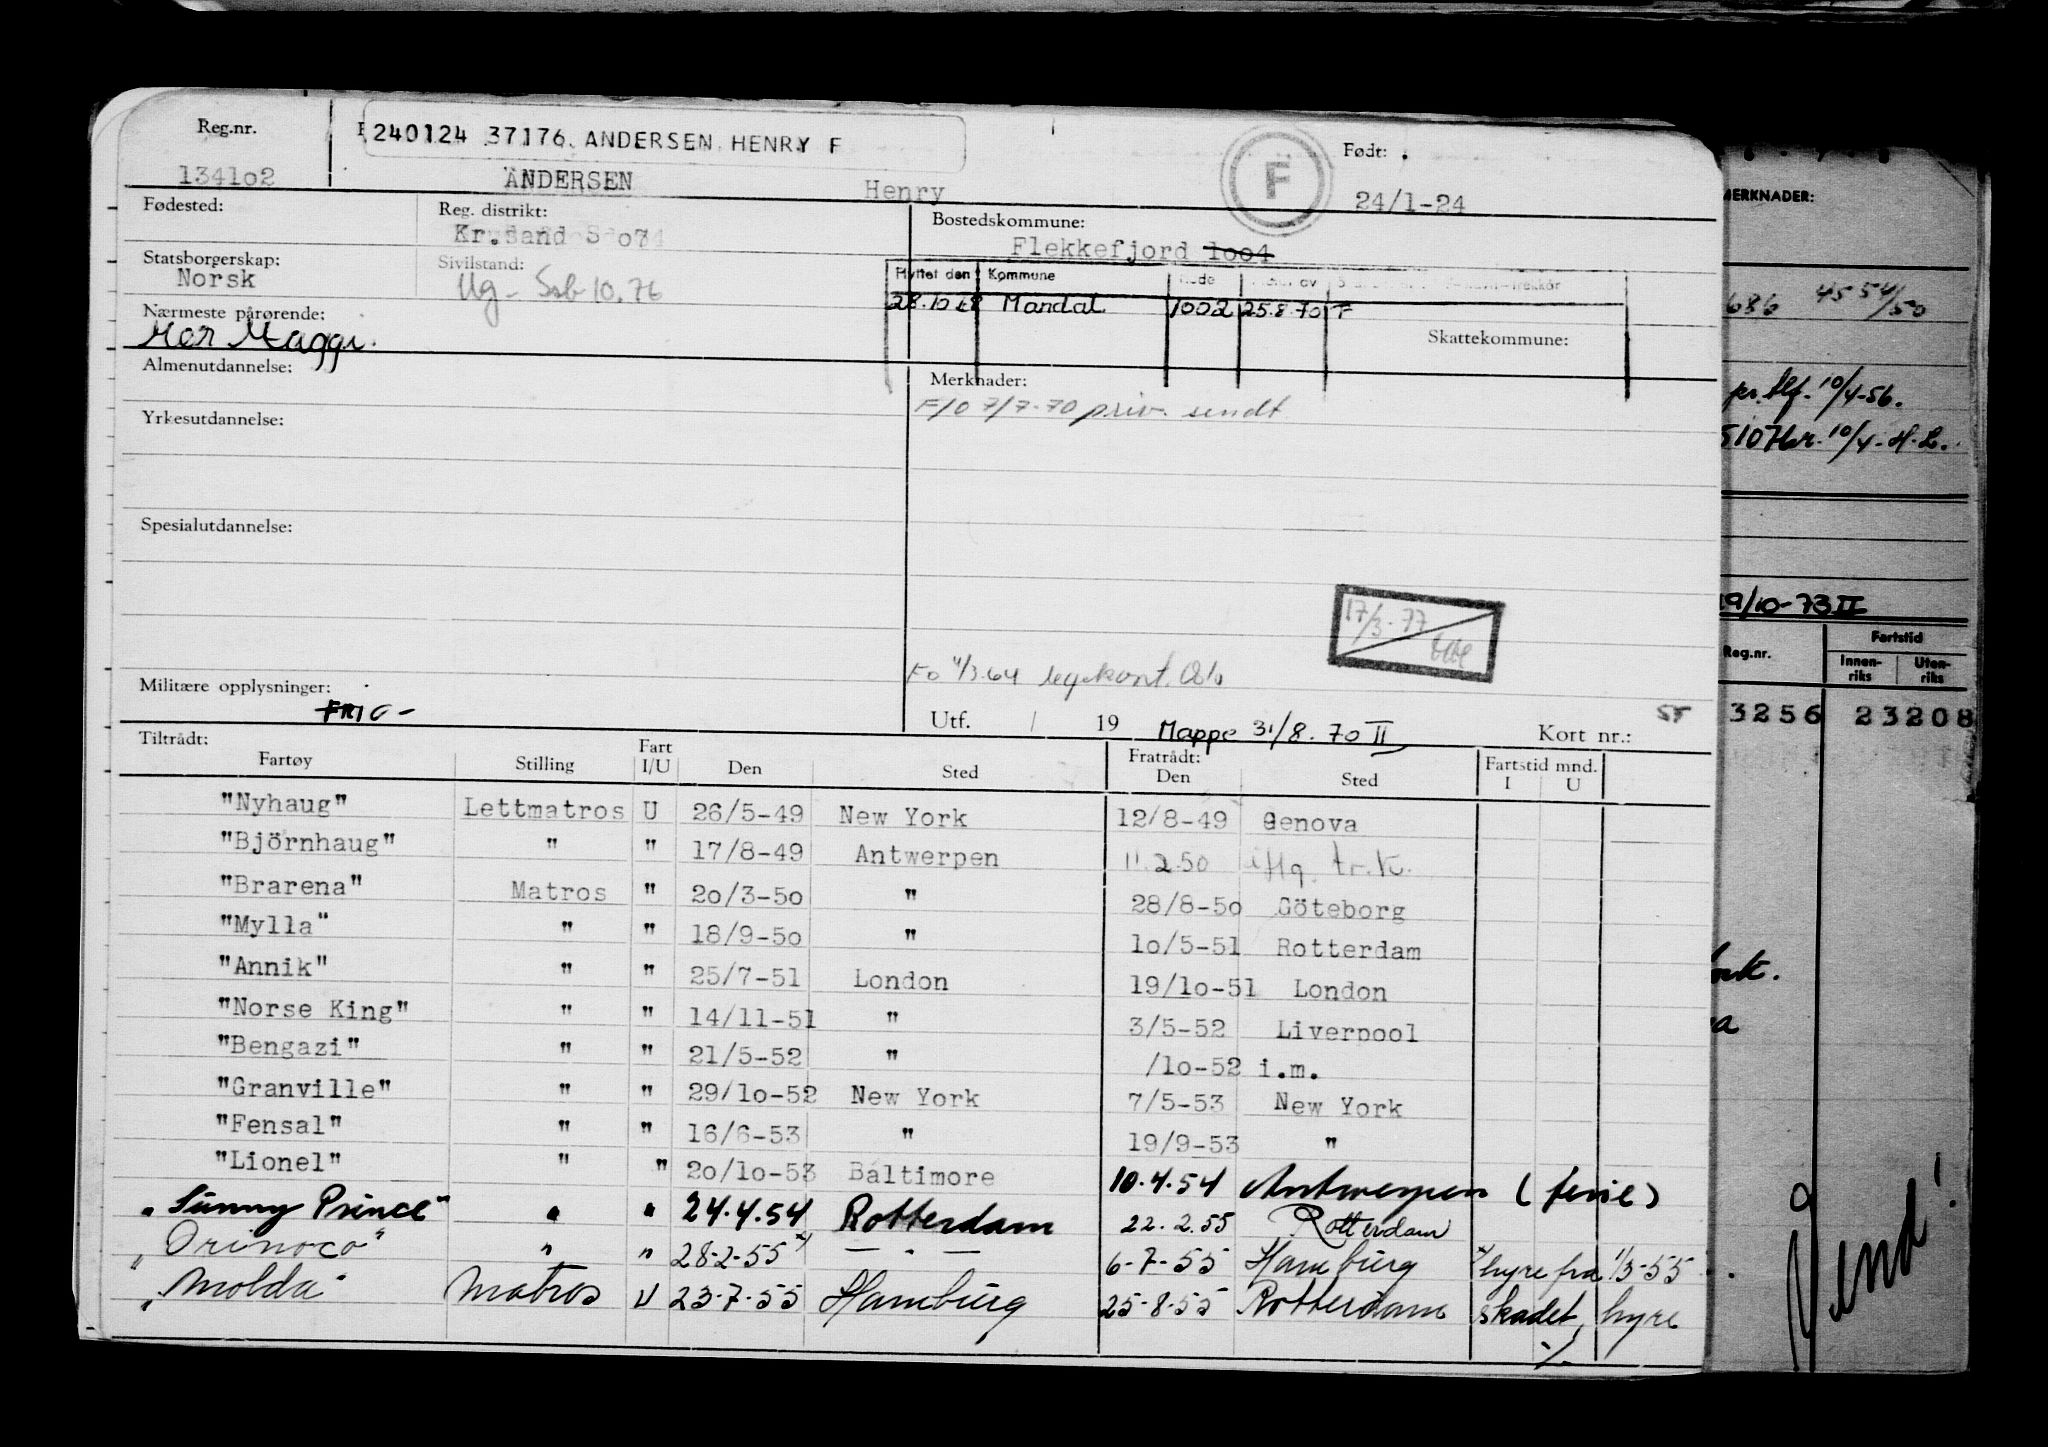 Reg.nr.
240124 37176. ANDERSEN, HENRY F
Født:
134lo2
ANDERSEN
Henry
F
24/1-24
Fødested:
Reg. distrikt:
Bostedskommune:
Kr.sand S o7
Flekkefjord loo4
Statsborgerskap:
Sivilstand:
Norsk
Ug- Ssb 10.76
Flyttet den Kommune
28.10.68 Mandal 1002 25.8.70 F
Nærmeste pårørende:
Skattekommune:
Mor Maggi.
Almenutdannelse:
Merknader:
F/O 7/7-70 priv. sendt
Yrkesutdannelse:
Spesialutdannelse:
17/3-77
Fo 4/3.64 legekont. Oslo
Militære opplysninger:
FRIG-
Utf. / 19
Mappe 31/8.70 II
Kort nr.:
55
Tiltrådt:
Fratrådt:
Fartstid mnd.
Fartøy Stilling Fart I/U Den Sted Den Sted I U
"Nyhaug" Lettmatros U 26/5-49 New York 12/8-49 Genova
"Björnhaug" " " 17/8-49 Antwerpen 11.2.50 iflg. tr.k.
"Brarena" Matros " 2o/3-5o " 28/8-5o Göteborg
"Mylla" " " 18/9-5o " lo/5-51 Rotterdam
"Annik" " " 25/7-51 London 19/lo-51 London
"Norse King" " " 14/11-51 " 3/5-52 Liverpool
"Bengazi" " " 21/5-52 " /lo-52 i.m.
"Granville" " " 29/lo-52 New York 7/5-53 New York
"Fensal" " " 16/6-53 " 19/9-53 "
"Lionel" " " 2o/lo-53 Baltimore 10.4.54 Antwerpen (ferie)
"Sunny Prince" " " 24.4.54 Rotterdam 22.2.55 Rotterdam
"Orinoco" " " 28-2-55 x) — " — 6-7-55 Hamburg x) hyre fra 1/3-55
"Molda" Matros U 23-7-55 Hamburg 25-8-55 Rotterdam skadet, hyre
./.
MERKNADER:
686 4554/50
pr. tlf. 10/4-56.
5107 kr. 10/4-H.L.
19/10-73 II
Reg.nr.
Fartstid
Innen-
riks
Uten-
riks
3256 23208
Vend!